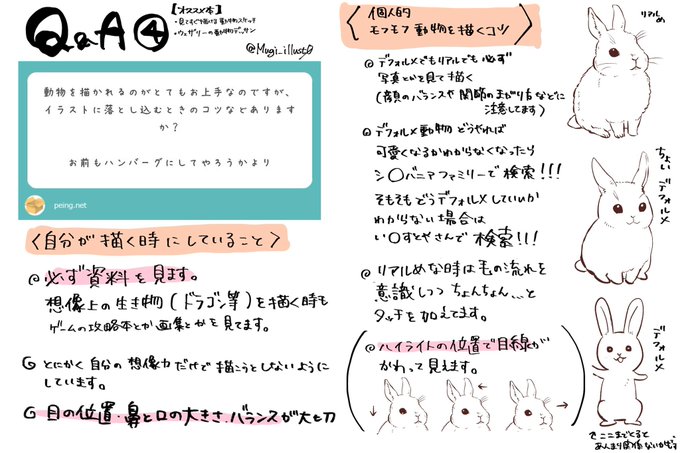 Q&A④
【オススメ本】
・見てすぐ描ける動物スケッチ
・ウェザリーの動物デッサン
@Mugi_illust0
動物を描かれるのがとてもお上手なのですが、
イラストに落とし込むときのコツなどあります
か？
お前もハンバーグにしてやろうかより
peing.net
〈自分が描く時にしていること〉
◎必ず資料を見ます。
想像上の生き物(ドラゴン等)を描く時も
ゲームの攻略本とか画集とかを見てます。
◎とにかく自分の想像力だけで描こうとしないように
しています。
◎目の位置・鼻と口の大きさ・バランスが大切
〈個人的
モフモフ動物を描くコツ〉
◎デフォルメでもリアルでも必ず
写真とかを見て描く
(顔のバランスや関節のまがり方などに
注意してます)
◎デフォルメ動物どうやれば
可愛くなるかわからなくなったら
シ〇バニアファミリーで検索!!!
そもそもどうデフォルメしていいか
わからない場合は
い〇すとやさんで検索!!!
◎リアルめな時は毛の流れを
意識しつつちょんちょん…と
タッチを加えてます。
(◎ハイライトの位置で目線が
かわって見えます。)
リアルめ
ちょい
デフォルメ
デフォルメ
ここまでくると
あんまり関係ないかも。